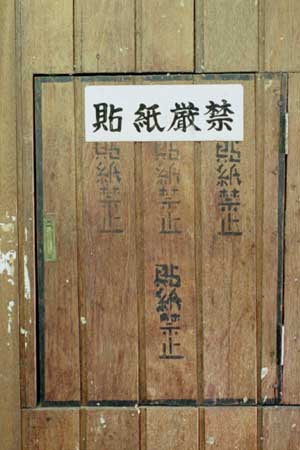 貼紙厳禁
貼紙禁止
貼紙禁止
貼紙禁止
貼紙禁止